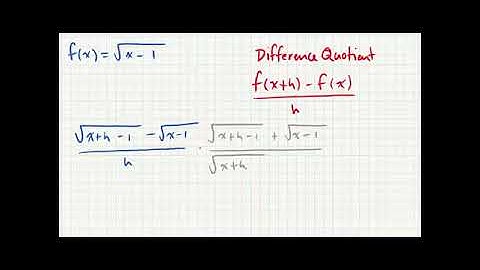 f(x) = √(x - 1)
Difference Quotient
f(x+h) - f(x) / h
√(x+h-1) - √(x-1) / h · √(x+h-1) + √(x-1) / √(x+h)